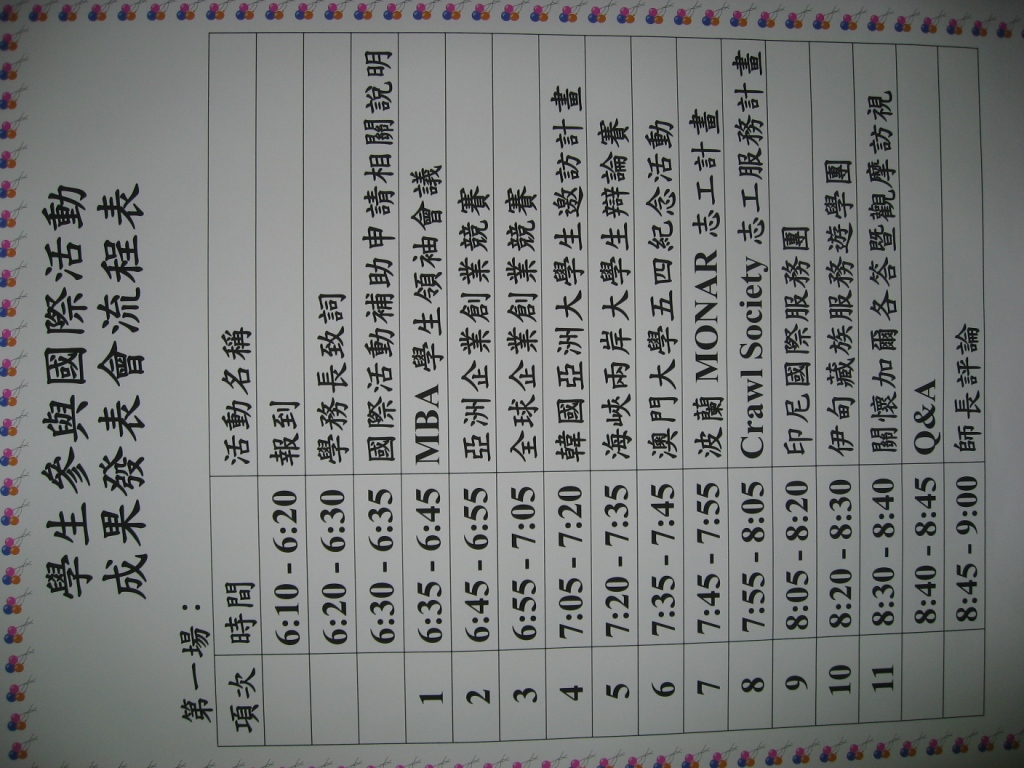 學生參與國際活動
成果發表會流程表
第一場：
項次 時間 活動名稱
6:10 - 6:20 報到
6:20 - 6:30 學務長致詞
6:30 - 6:35 國際活動補助申請相關說明
1 6:35 - 6:45 MBA 學生領袖會議
2 6:45 - 6:55 亞洲企業創業競賽
3 6:55 - 7:05 全球企業創業競賽
4 7:05 - 7:20 韓國亞洲大學生邀訪計畫
5 7:20 - 7:35 海峽兩岸大學生辯論賽
6 7:35 - 7:45 澳門大學五四紀念活動
7 7:45 - 7:55 波蘭 MONAR 志工計畫
8 7:55 - 8:05 Crawl Society 志工服務計畫
9 8:05 - 8:20 印尼國際服務團
10 8:20 - 8:30 伊甸藏族服務遊學團
11 8:30 - 8:40 關懷加爾各答暨觀摩訪視
8:40 - 8:45 Q&A
8:45 - 9:00 師長評論